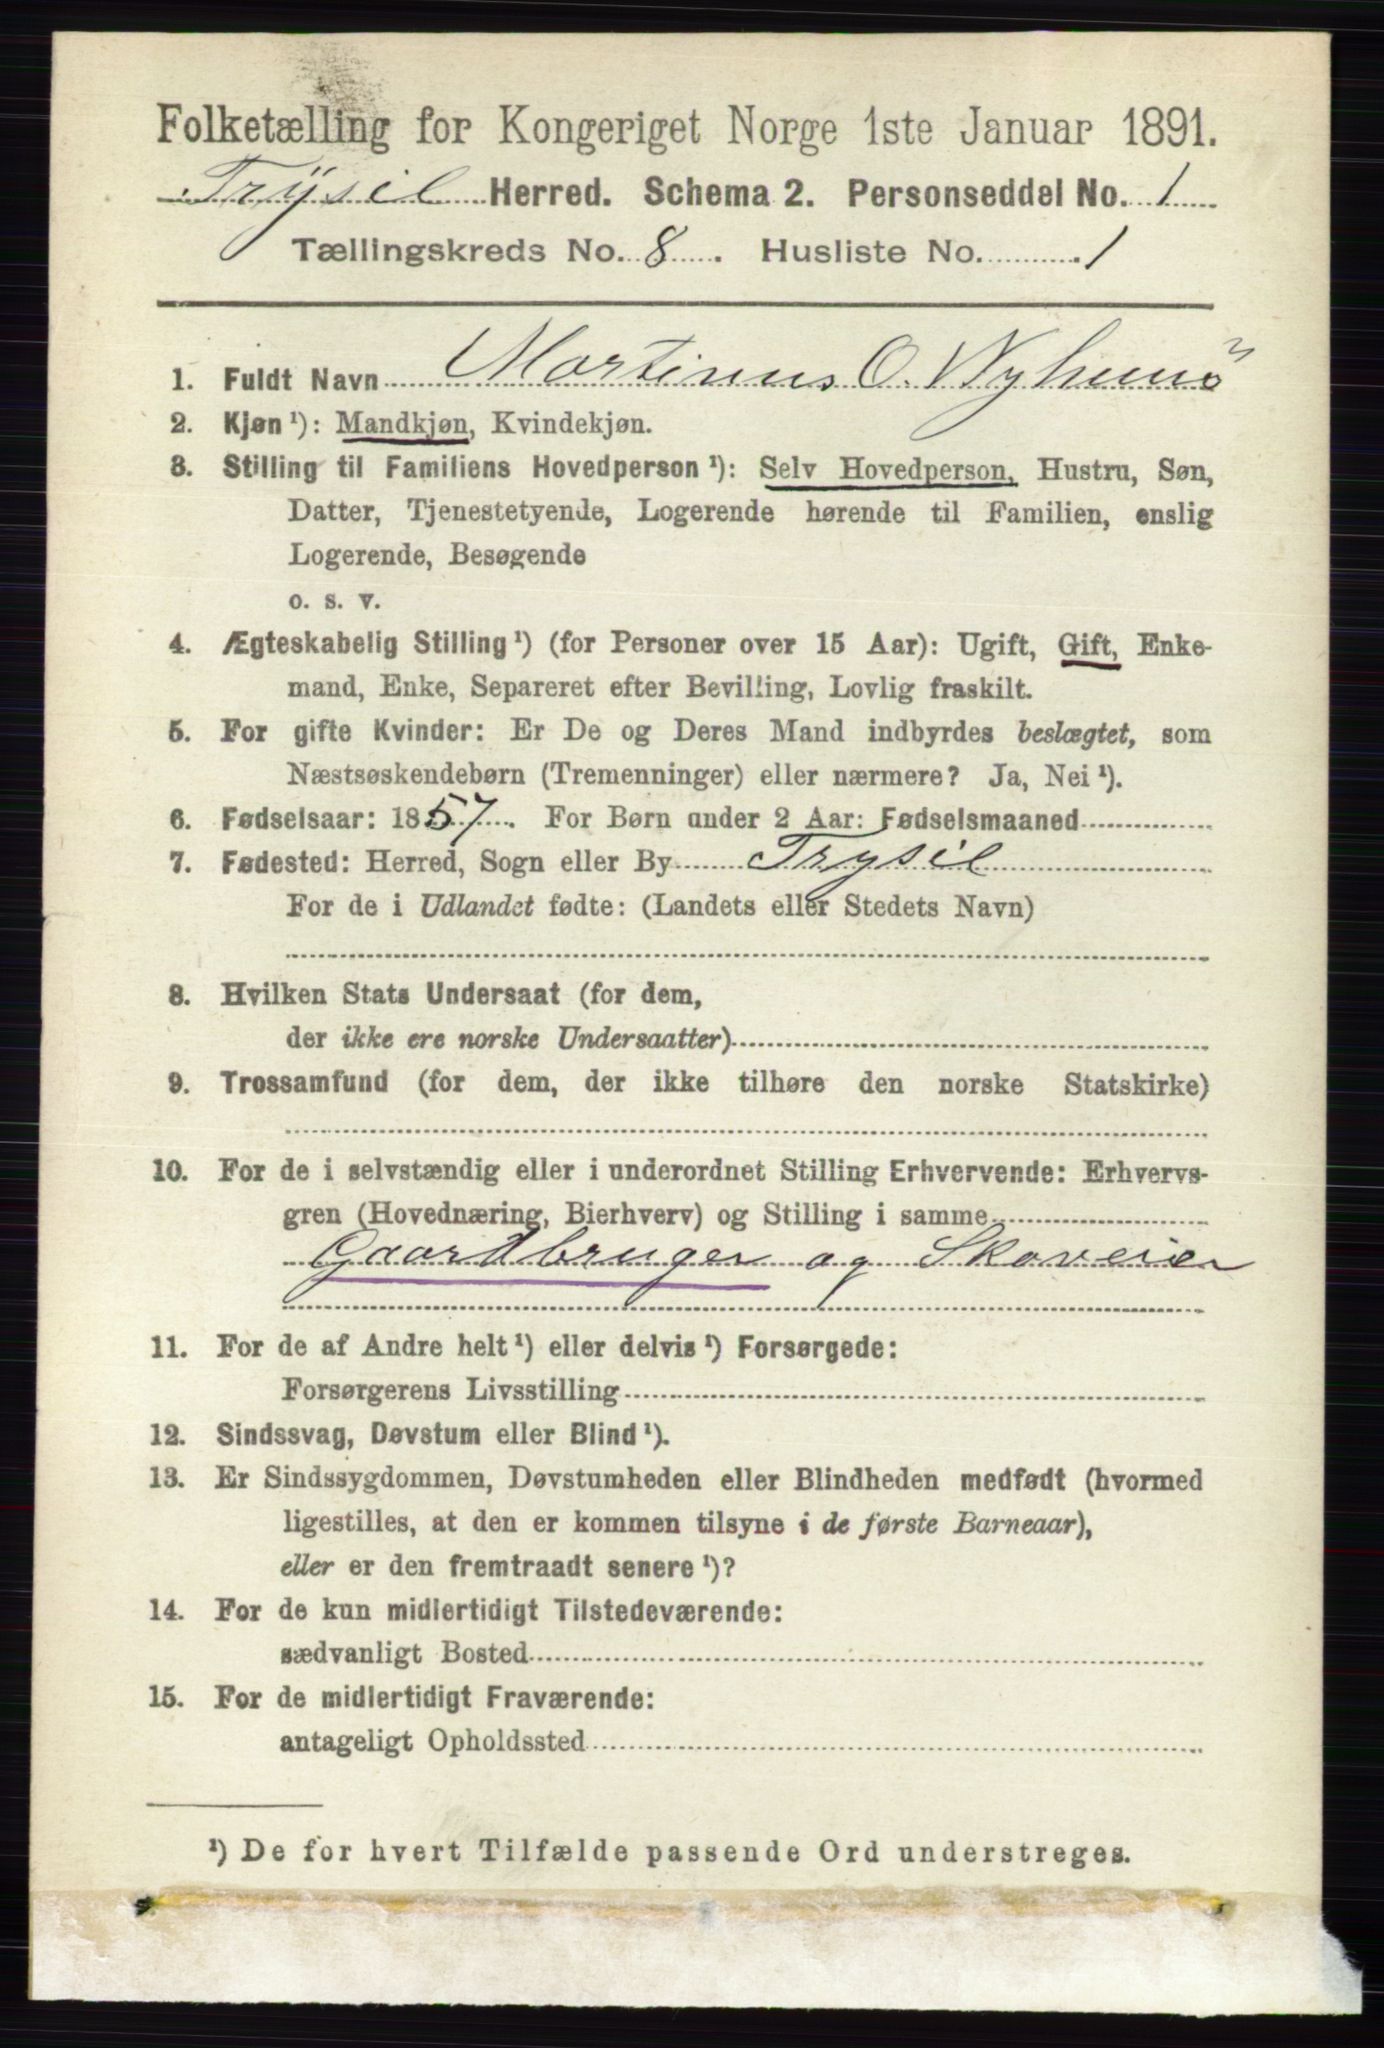 Folketælling for Kongeriget Norge 1ste Januar 1891.
Trysil Herred. Schema 2. Personseddel No. 1
Tællingskreds No. 8. Husliste No. 1
1. Fuldt Navn Martinus O. Nyhuus
2. Kjøn ¹): Mandkjøn, Kvindekjøn.
3. Stilling til Familiens Hovedperson ¹): Selv Hovedperson, Hustru, Søn,
Datter, Tjenestetyende, Logerende hørende til Familien, enslig
Logerende, Besøgende
o. s. v.
4. Ægteskabelig Stilling ¹) (for Personer over 15 Aar): Ugift, Gift, Enke-
mand, Enke, Separeret efter Bevilling, Lovlig fraskilt.
5. For gifte Kvinder: Er De og Deres Mand indbyrdes beslægtet, som
Næstsøskendebørn (Tremenninger) eller nærmere? Ja, Nei ¹).
6. Fødselsaar: 1857. For Børn under 2 Aar: Fødselsmaaned
7. Fødested: Herred, Sogn eller By Trysil
For de i Udlandet fødte: (Landets eller Stedets Navn)
8. Hvilken Stats Undersaat (for dem,
der ikke ere norske Undersaatter)
9. Trossamfund (for dem, der ikke tilhøre den norske Statskirke)
10. For de i selvstændig eller i underordnet Stilling Erhvervende: Erhvervs-
gren (Hovednæring, Bierhverv) og Stilling i samme
Gaardbruger og Skoveier
11. For de af Andre helt ¹) eller delvis ¹) Forsørgede:
Forsørgerens Livsstilling
12. Sindssvag, Døvstum eller Blind ¹).
13. Er Sindssygdommen, Døvstumheden eller Blindheden medfødt (hvormed
ligestilles, at den er kommen tilsyne i de første Barneaar),
eller er den fremtraadt senere ¹)?
14. For de kun midlertidigt Tilstedeværende:
sædvanligt Bosted
15. For de midlertidigt Fraværende:
antageligt Opholdssted
¹) De for hvert Tilfælde passende Ord understreges.